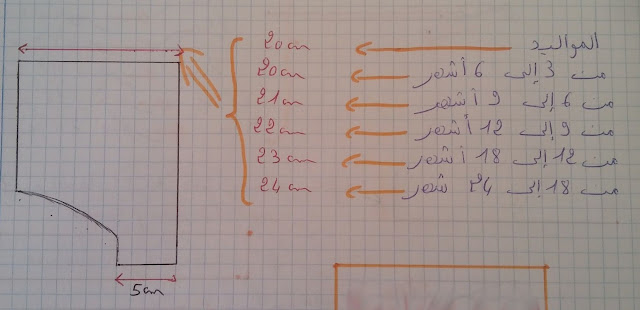 المواليد 20cm
من 3 إلى 6 أشهر 20cm
من 6 إلى 9 أشهر 21cm
من 9 إلى 12 أشهر 22cm
من 12 إلى 18 أشهر 23cm
من 18 إلى 24 شهر 24cm
5cm